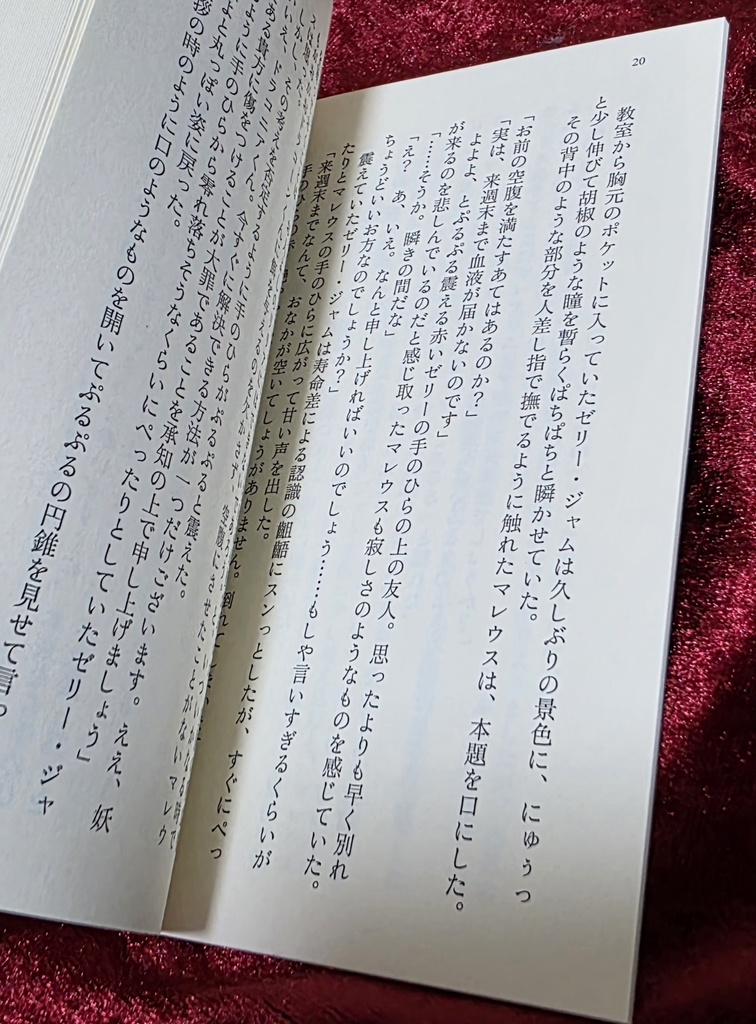 20
教室から胸元のポケットに入っていたゼリー・ジャムは久しぶりの景色に、にゅうっ
と少し伸びて胡椒のような瞳を暫らくぱちぱちと瞬かせていた。
その背中のような部分を人差し指で撫でるように触れたマレウスは、本題を口にした。
「お前の空腹を満たすあてはあるのか?」
「実は、来週末まで血液が届かないのです」
よよよ、とぷるぷる震える赤いゼリーの手のひらの上の友人。思ったよりも早く別れ
が来るのを悲しんでいるのだと感じ取ったマレウスも寂しさのようなものを感じていた。
「……そうか。瞬きの間だな」
「え? あ、いえ。なんと申し上げればいいのでしょう……もしや言いすぎるくらいが
ちょうどいいお方なのでしょうか?」
震えていたゼリー・ジャムは寿命差による認識の齟齬にスンっとしたが、すぐにぺっ
たりとマレウスの手のひらに広がって甘い声を出した。
「来週末までなんて、おなかが空いてしょうがありません。倒れて
手のひらの
させたことがないマレウ
いえ、その考えを否定するように手のひらがぷるぷると震えた。
ドラコニアくん。今すぐに解決できる方法が一つだけございます。ええ、妖
ある貴方に傷をつけることが大罪であることを承知の上で申し上げましょう」
ように手のひらから零れ落ちそうなくらいにぺったりとしていたゼリー・ジャ
よと丸っぽい姿に戻った。
拶の時のように口のようなものを開いてぷるぷるの円錐を見せて言っ